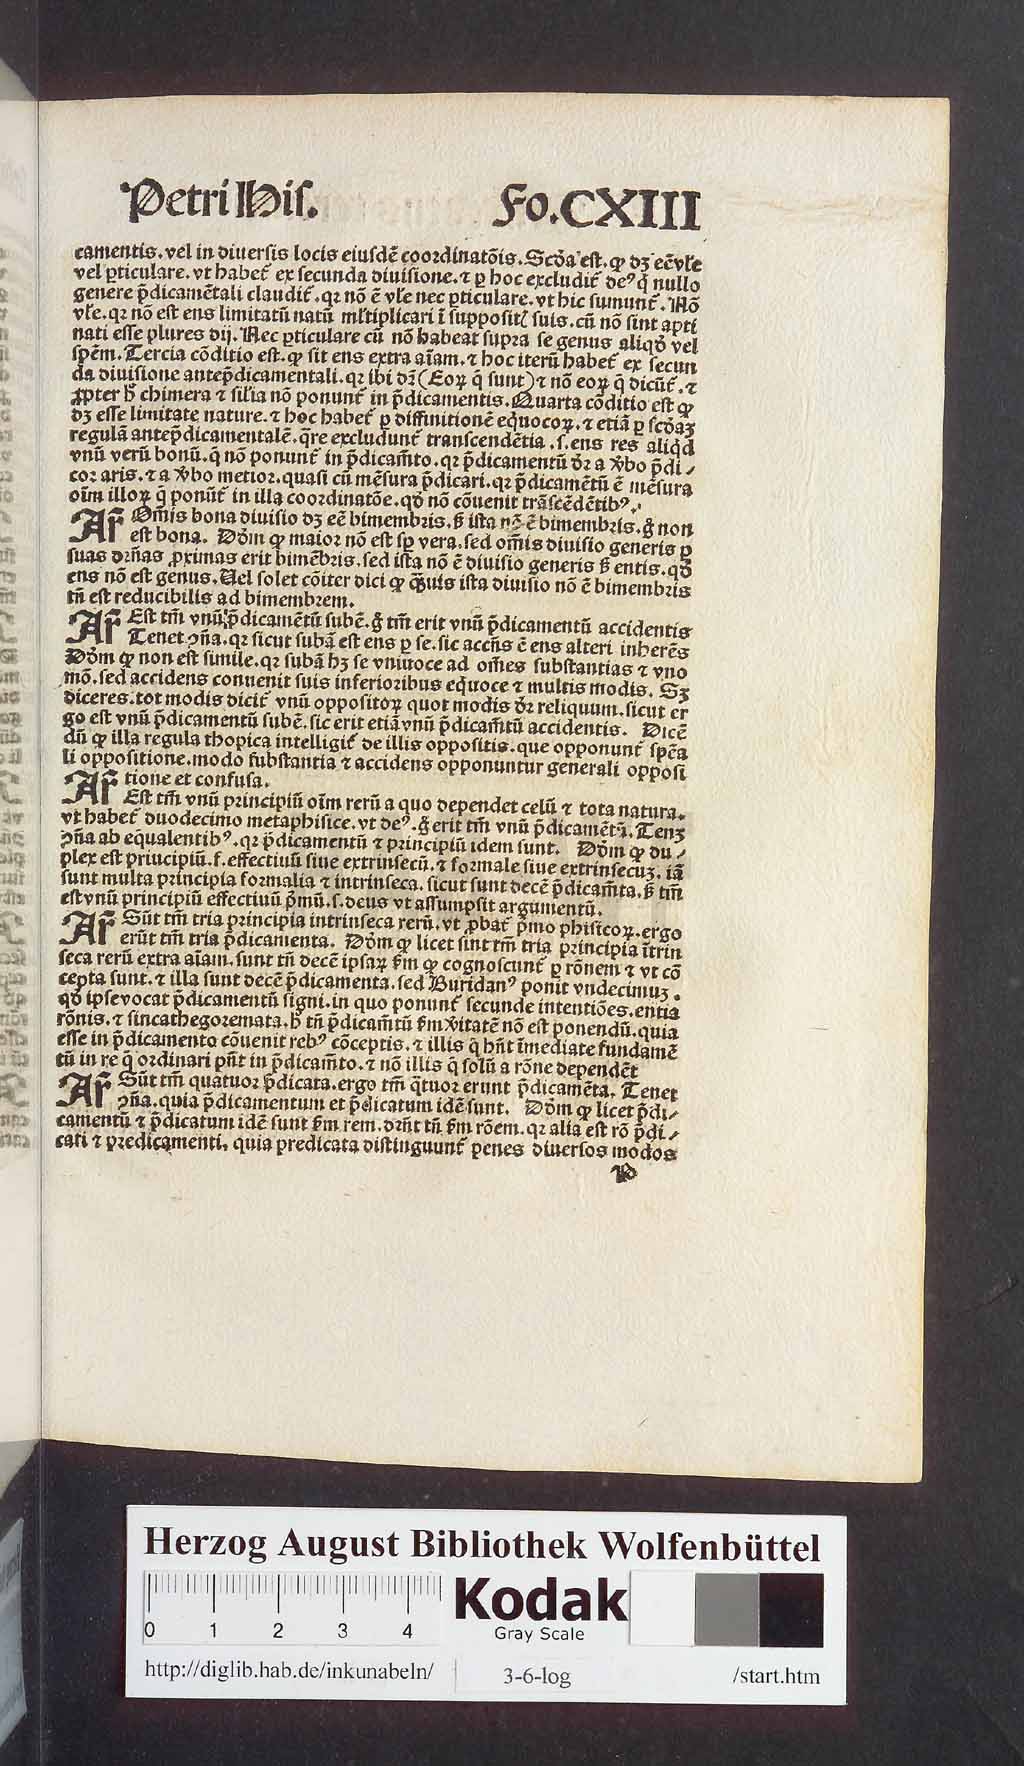 Petri His. Fo.CXIII
camentis. vel in diuersis locis eiusdē coordinatōis. Scďa est. ꝙ dꝫ eē vłe
vel ꝑticulare. vt habeť ex secunda diuisione. ⁊ ꝑ hoc excludiť deꝰ q̄ nullo
genere p̄dicamētali claudiť. qꝛ nō ē vłe nec ꝑticulare. vt hic sumunť. Nō
vłe. qꝛ nō est ens limitatū natū mľtiplicari ī suppositꝭ suis. cū nō sint apti
nati esse plures dij. Nec ꝑticulare cū nō habeat supra se genus aliqď vel
spēm. Tercia cōditio est. ꝙ sit ens extra aīam. ⁊ hoc iterū habeť ex secun
da diuisione antep̄dicamentali. qꝛ ibi dꝛ̄ (Eoꝝ q̄ sunt) ⁊ nō eoꝝ q̄ dicūť. ⁊
ꝓpter h̄ chimera ⁊ sił̄ia nō ponunť in p̄dicamentis. Quarta cōditio est ꝙ
dꝫ esse limitate nature. ⁊ hoc habeť ꝑ diffinitionē equocoꝝ. ⁊ etiā ꝑ scďaꝫ
regulā antep̄dicamentalē. q̄re excludunť transcendētia .s. ens res aliq̇d
vnū verū bonū. q̄ nō ponunť in p̄dicam̄to. qꝛ p̄dicamentū dꝛ̄ a v̄bo p̄di⸗
coꝛ aris. ⁊ a v̄bo metioꝛ. quasi cū mēsura p̄dicari. qꝛ p̄dicamētū ē mēsura
oīm illoꝝ q̄ ponūť in illa coordinatōe. qď nō cōuenit trāscēdētibꝰ.
Aꝛ̄ Om̄is bona diuisio dꝫ eē bimembris. ß ista nō ē bimembris. g̊ non
est bona. Dōm ꝙ maior nō est sꝑ vera. sed om̄is diuisio generis ꝑ
suas drn̄as ꝓximas erit bimēbris. sed ista nō ē diuisio generis ß entis. qď
ens nō est genus. Uel solet cōiter dici ꝙ q̄ꝫuis ista diuisio nō ē bimembris
tn̄ est reducibilis ad bimembrem.
Aꝛ̄ Est tm̄ vnū p̄dicamētū subē. g̊ tm̄ erit vnū p̄dicamentū accidentis
Tenet ꝯn̄a. qꝛ sicut subā est ens ꝑ se. sic accn̄s ē ens alteri inherēs
Dōm ꝙ non est simile. qꝛ subā hꝫ se vniuoce ad om̄es substantias ⁊ vno
mō. sed accidens conuenit suis inferioribus eq̄uoce ⁊ multis modis. Sꝫ
diceres. tot modis diciť vnū oppositoꝝ quot modis dꝛ̄ reliquum. sicut er
go est vnū p̄dicamentū subē. sic erit etiā vnū p̄dicam̄tū accidentis. Dicē
dū ꝙ illa regula thopica intelligiť de illis oppositis. que opponunť sp̄ēa
li oppositione. modo substantia ⁊ accidens opponuntur generali opposi
tione et confusa.
Aꝛ̄ Est tm̄ vnū principiū oīm rerū a quo dependet celū ⁊ tota natura.
vt habeť duodecimo metaphisice. vt deꝰ. g̊ erit tm̄ vnū p̄dicamētū. Tenꝫ
ꝯn̄a ab equalentibꝰ. qꝛ p̄dicamentū ⁊ principiū idem sunt. Dōm ꝙ du⸗
plex est priucipiū. s. effectiuū siue extrinsecū. ⁊ formale siue extrinsecuꝫ. iā
sunt multa principia formalia ⁊ intrinseca. sicut sunt decē p̄dicam̄ta. ß tm̄
est vnū principiū effectiuū p̄mū. s. deus vt assumpsit argumentū.
Aꝛ̄ Sūt tm̄ tria principia intrinseca rerū. vt ꝓbať p̄mo phisicoꝝ. ergo
erūt tm̄ tria p̄dicamenta. Dōm ꝙ licet sint tm̄ tria principia ītrin
seca rerū extra aīam. sunt tn̄ decē ipsaꝝ ẜm ꝙ cognoscunť ꝑ rōnem ⁊ vt cō
cepta sunt. ⁊ illa sunt decē p̄dicamenta. sed Buridanꝰ ponit vndecimuꝫ.
qď ipse vocat p̄dicamentū signi. in quo ponunť secunde intentiōes. entia
rōnis. ⁊ sincathegoremata. h̄ tn̄ p̄dicam̄tū ẜm v̄itatē nō est ponendū. quia
esse in p̄dicamento cōuenit rebꝰ cōceptis. ⁊ illis q̄ hn̄t īmediate fundamē
tū in re q̄ ordinari pn̄t in p̄dicam̄to. ⁊ nō illis q̄ solū a rōne dependēt
Aꝛ̄ Sūt tm̄ quatuor p̄dicata. ergo tm̄ q̄tuor erunt p̄dicamēta. Tenet
ꝯn̄a. quia p̄dicamentum et p̄dicatum idē sunt. Dōm ꝙ licet p̄di⸗
camentū ⁊ p̄dicatum idē sunt ẜm rem. drn̄t tn̄ ẜm rōem. qꝛ alia est rō p̄di⸗
cati ⁊ predicamenti, quia predicata distinguunť penes diuersos modos
P
Herzog August Bibliothek Wolfenbüttel
0 1 2 3 4
Kodak
Gray Scale
http://diglib.hab.de/inkunabeln/ 3-6-log /start.htm